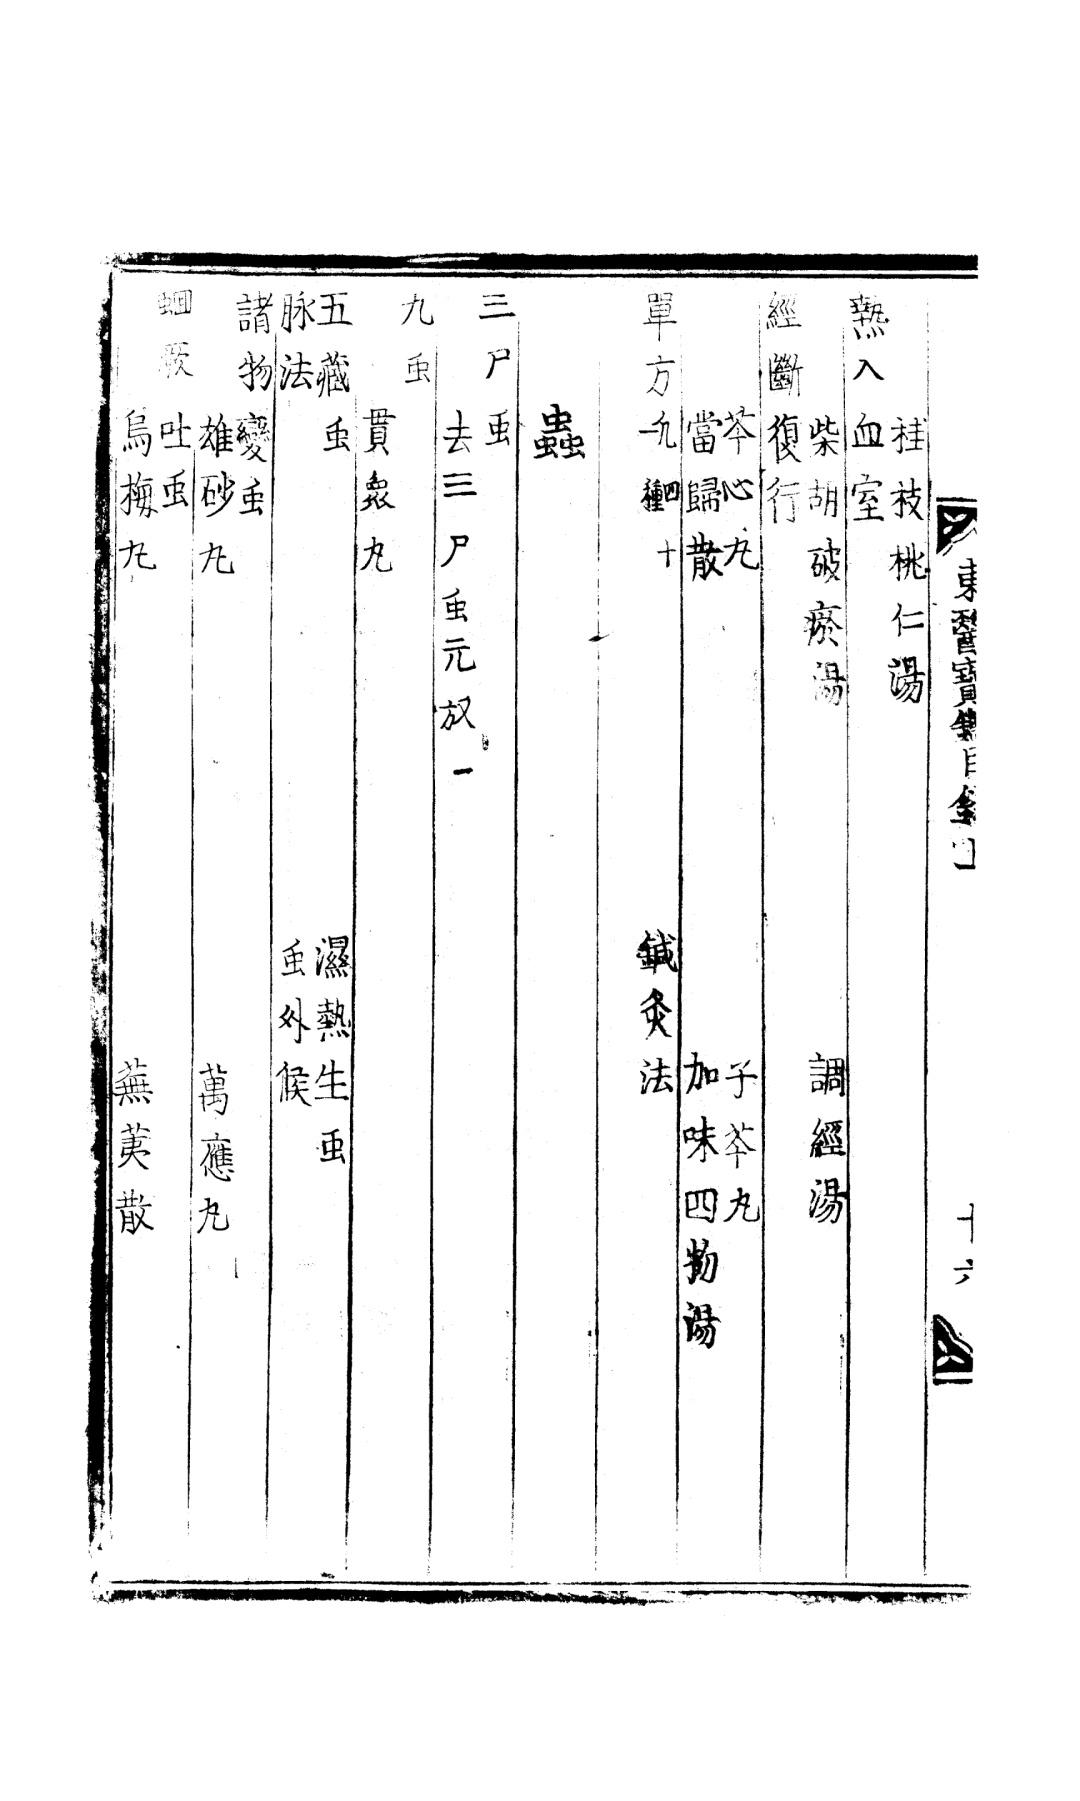 東醫寶鑑目錄
十六
桂枝桃仁湯
熱入血室
柴胡破瘀湯　調經湯
經斷復行
芩心丸　子芩丸
當歸散　加味四物湯
單方　四十九種　鍼灸法
蟲
三尸䖝
去三尸䖝元放一
九䖝
貫衆丸
五藏䖝　濕熱生䖝
脉法　䖝外候
諸物變䖝
雄砂丸　萬應丸
蛔厥吐䖝
烏梅丸　蕪荑散